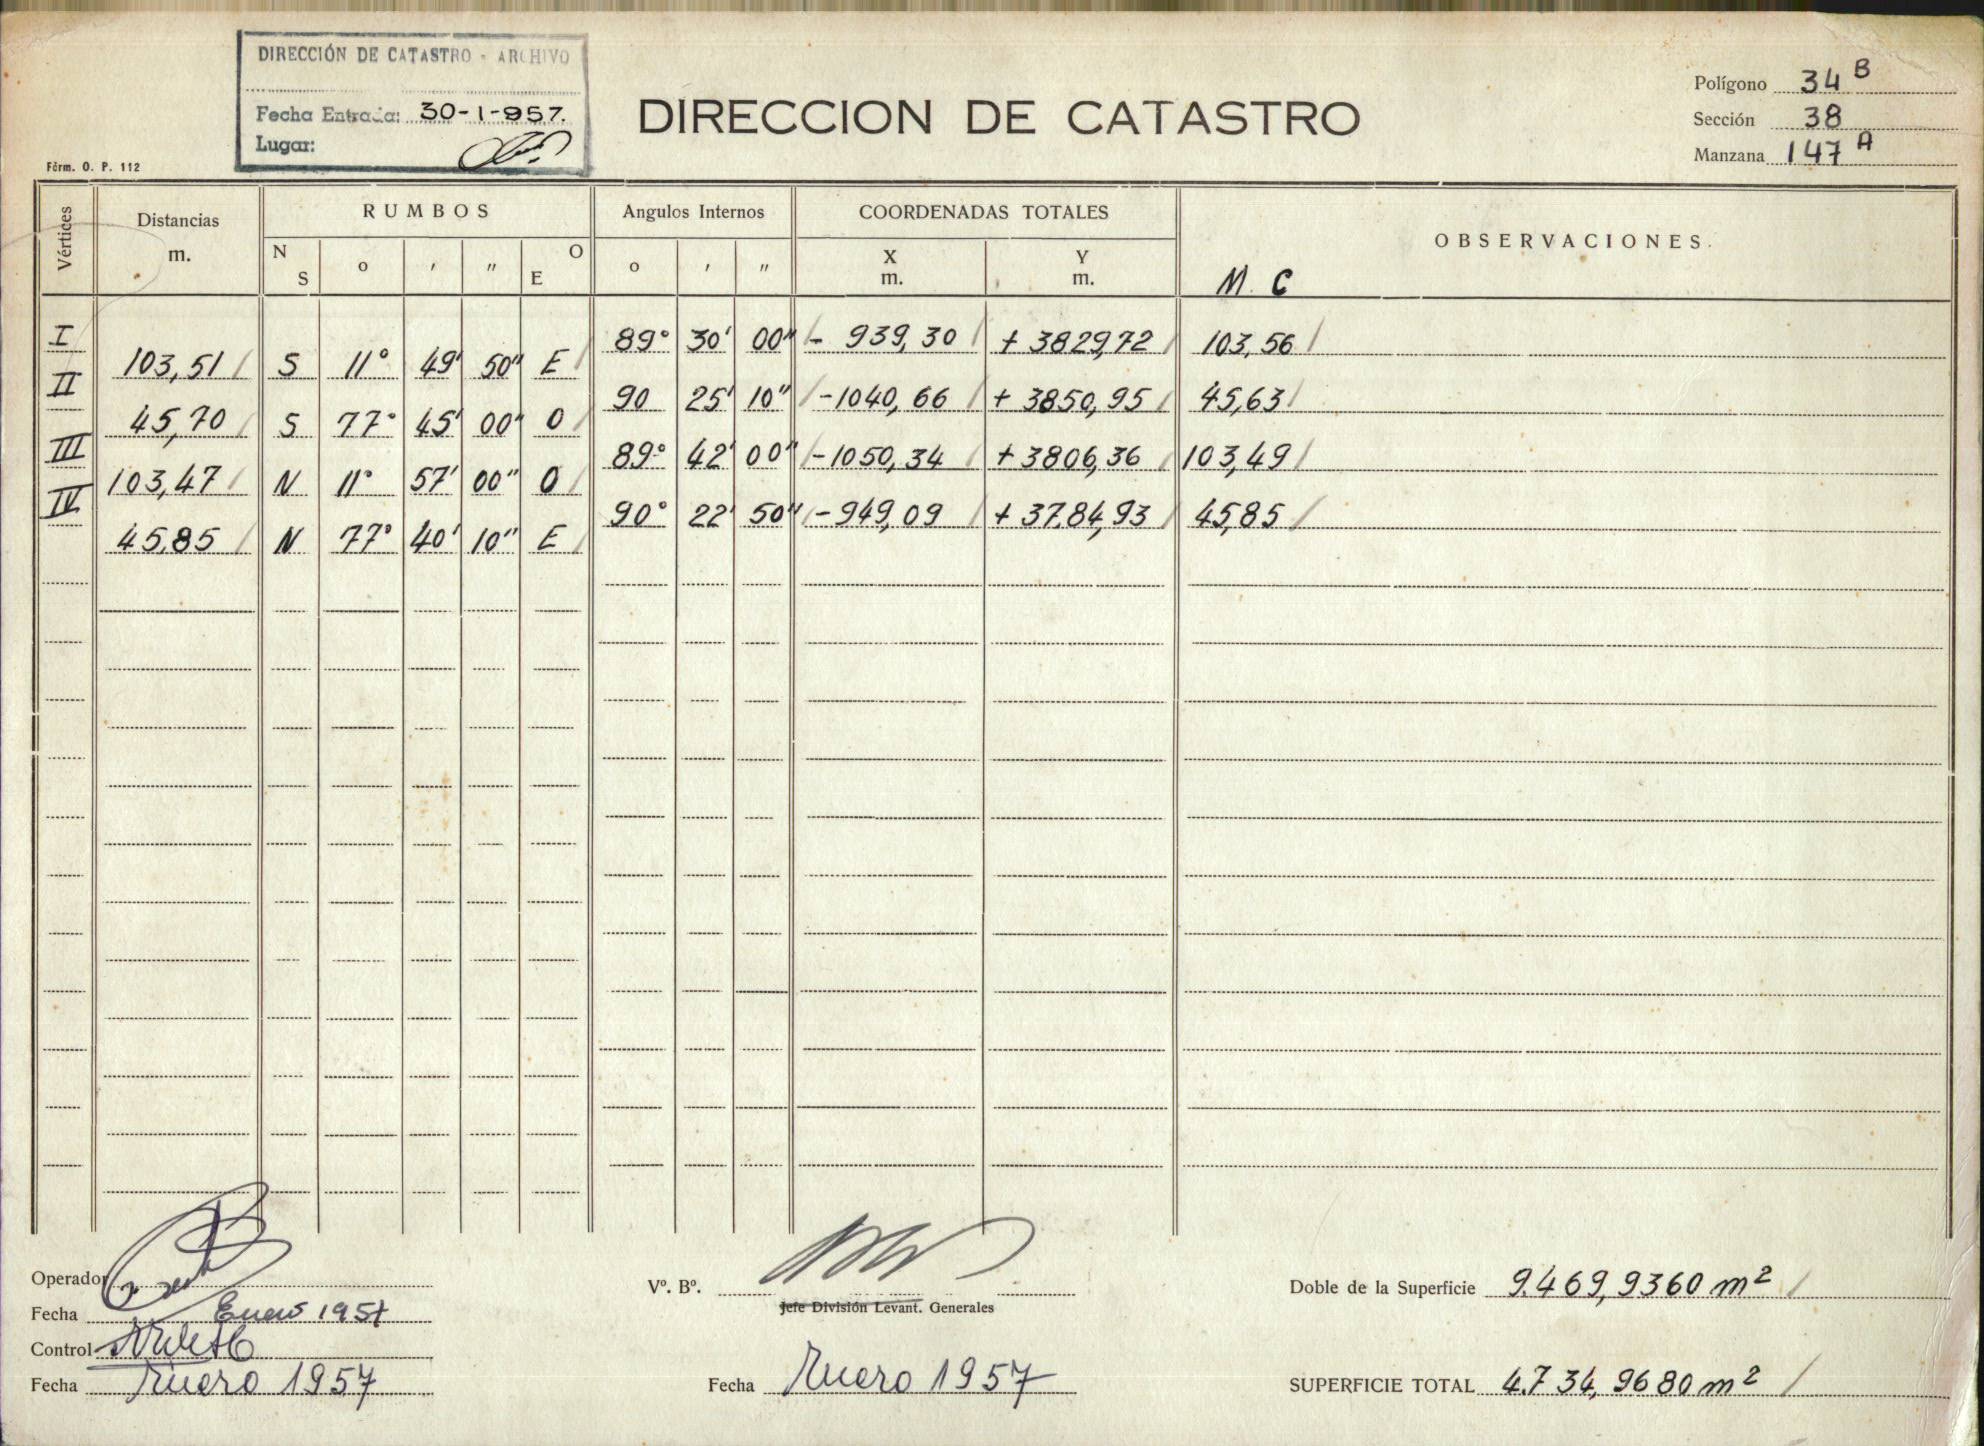 DIRECCIÓN DE CATASTRO - ARCHIVO
Fecha Entrada: 30-1-957.
Lugar:
Fórm. O. P. 112
DIRECCION DE CATASTRO
Polígono 34 B
Sección 38
Manzana 147 A
Vértices Distancias m. RUMBOS Angulos Internos COORDENADAS TOTALES OBSERVACIONES.
N S o ' " O E o ' " X m. Y m. M. C
I 89° 30' 00" - 939,30 + 3829,72 103,56
103,51 S 11° 49' 50" E
II 90 25' 10" -1040,66 + 3850,95 45,63
45,70 S 77° 45' 00" O
III 89° 42' 00" -1050,34 + 3806,36 103,49
103,47 N 11° 57' 00" O
IV 90° 22' 50" -949,09 + 3784,93 45,85
45,85 N 77° 40' 10" E
Operador
Fecha Enero 1957
Control
Fecha Enero 1957
Vº. Bº.
Jefe División Levant. Generales
Fecha Enero 1957
Doble de la Superficie 9.469,9360 m²
SUPERFICIE TOTAL 4.734,9680 m²